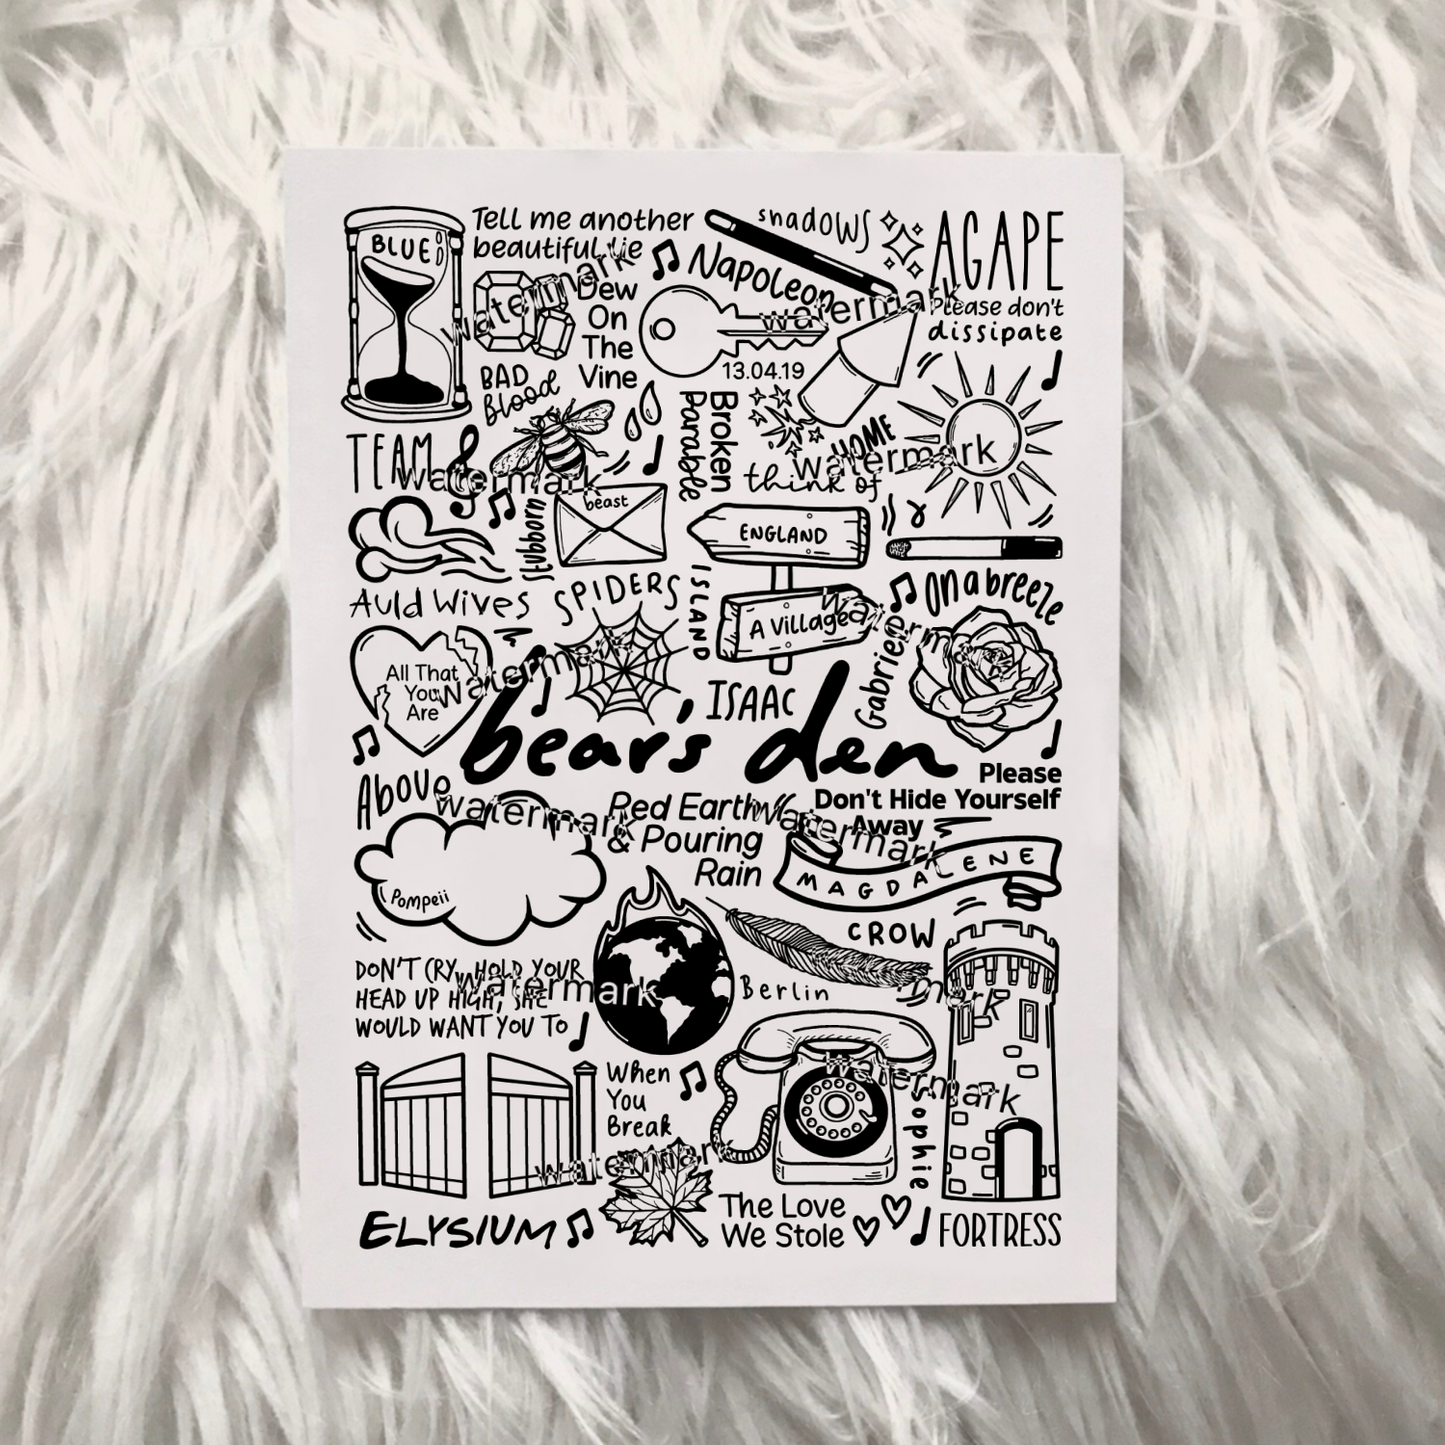 BLUE
Tell me another
beautiful lie
shadows
AGAPE
Napoleon
Dew
On
The
Vine
Please don't
dissipate
13.04.19
BAD
Blood
Broken
Parable
HOME
TEAM
think of
stubborn
beast
ENGLAND
Auld Wives
SPIDERS
ISLAND
A Village
On a breeze
Gabriel
All That
You
Are
ISAAC
bear's den
Please
Don't Hide Yourself
Away
Above
Red Earth
& Pouring
Rain
MAGDALENE
Pompeii
CROW
DON'T CRY, HOLD YOUR
HEAD UP HIGH, SHE
WOULD WANT YOU TO
Berlin
When
You
Break
Sophie
ELYSIUM
The Love
We Stole
FORTRESS
watermark
watermark
watermark
watermark
watermark
watermark
watermark
watermark
watermark
watermark
watermark
watermark